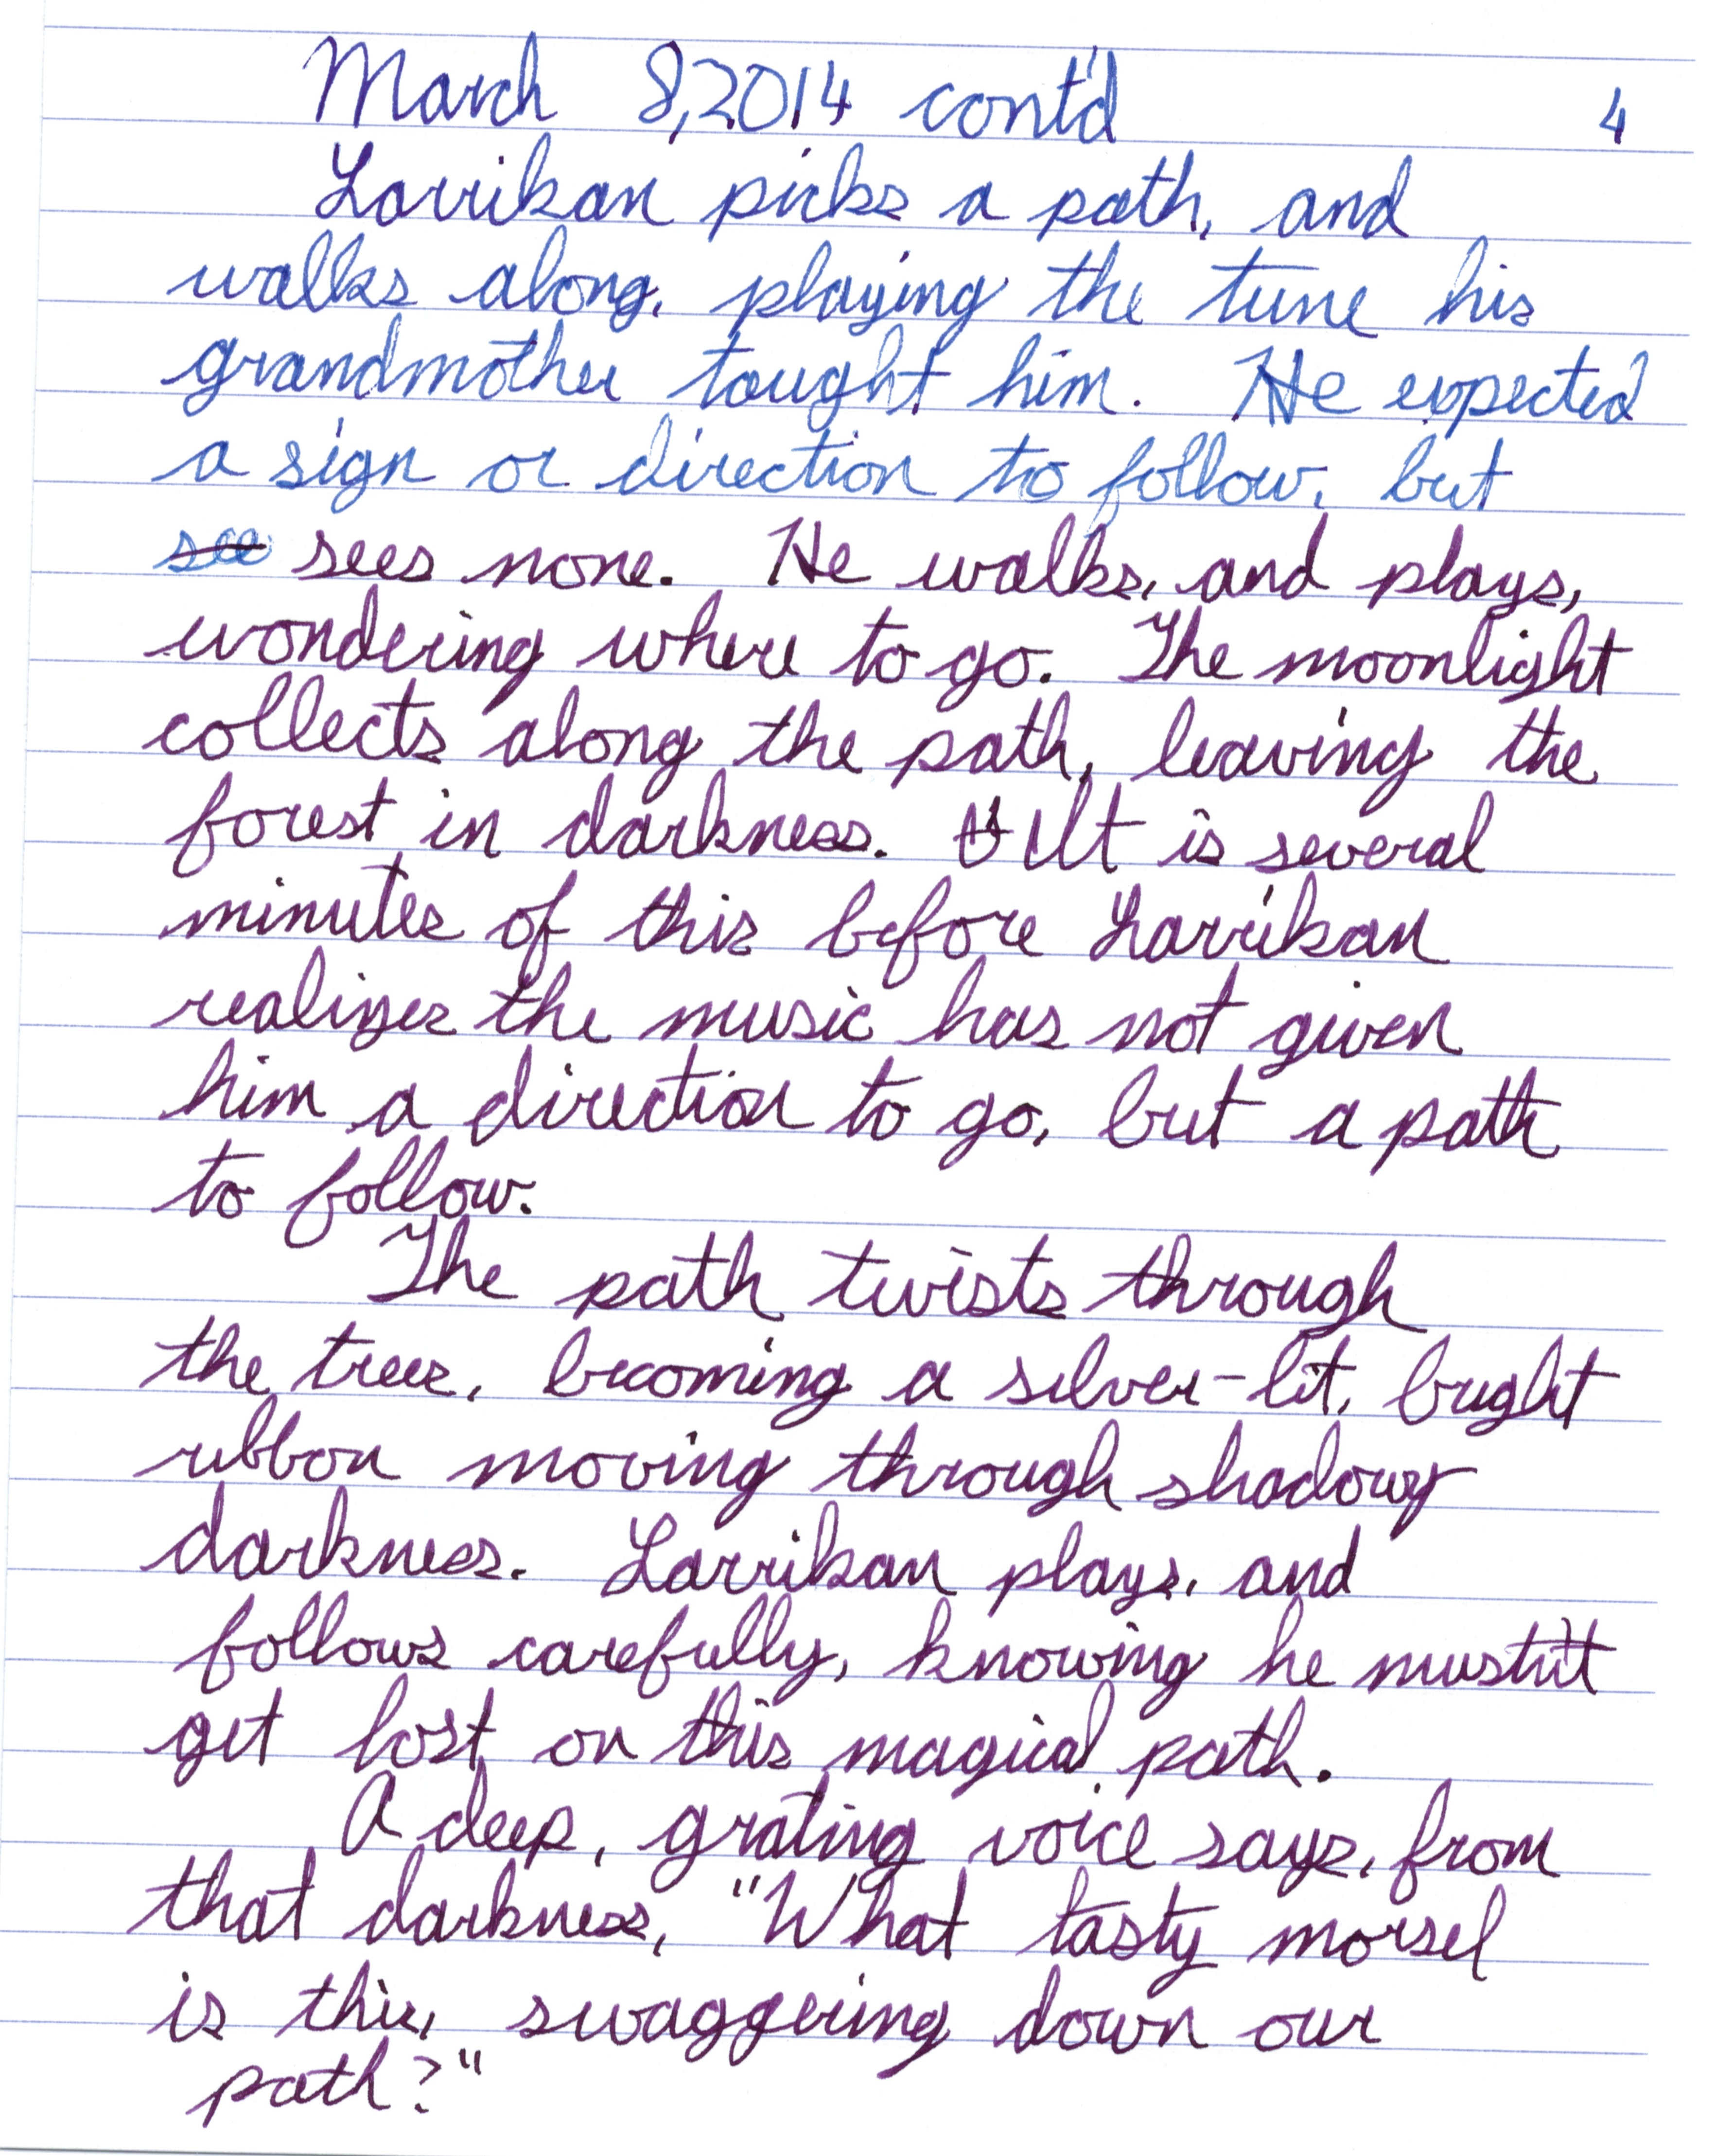 March 8, 2014 cont'd 4
Larrikan picks a path, and
walks along, playing the tune his
grandmother tought him. He expected
a sign or direction to follow, but
see sees none. He walks, and plays,
wondering where to go. The moonlight
collects along the path, leaving the
forest in darkness. It is several
minutes of this before Larrikan
realizes the music has not given
him a direction to go, but a path
to follow.
The path twists through
the trees, becoming a silver-lit, bright
ribbon moving through shadowy
darkness. Larrikan plays, and
follows carefully, knowing he mustn't
get lost on this magical path.
A deep, grating voice says, from
that darkness, "What tasty morsel
is this, swaggering down our
path?"